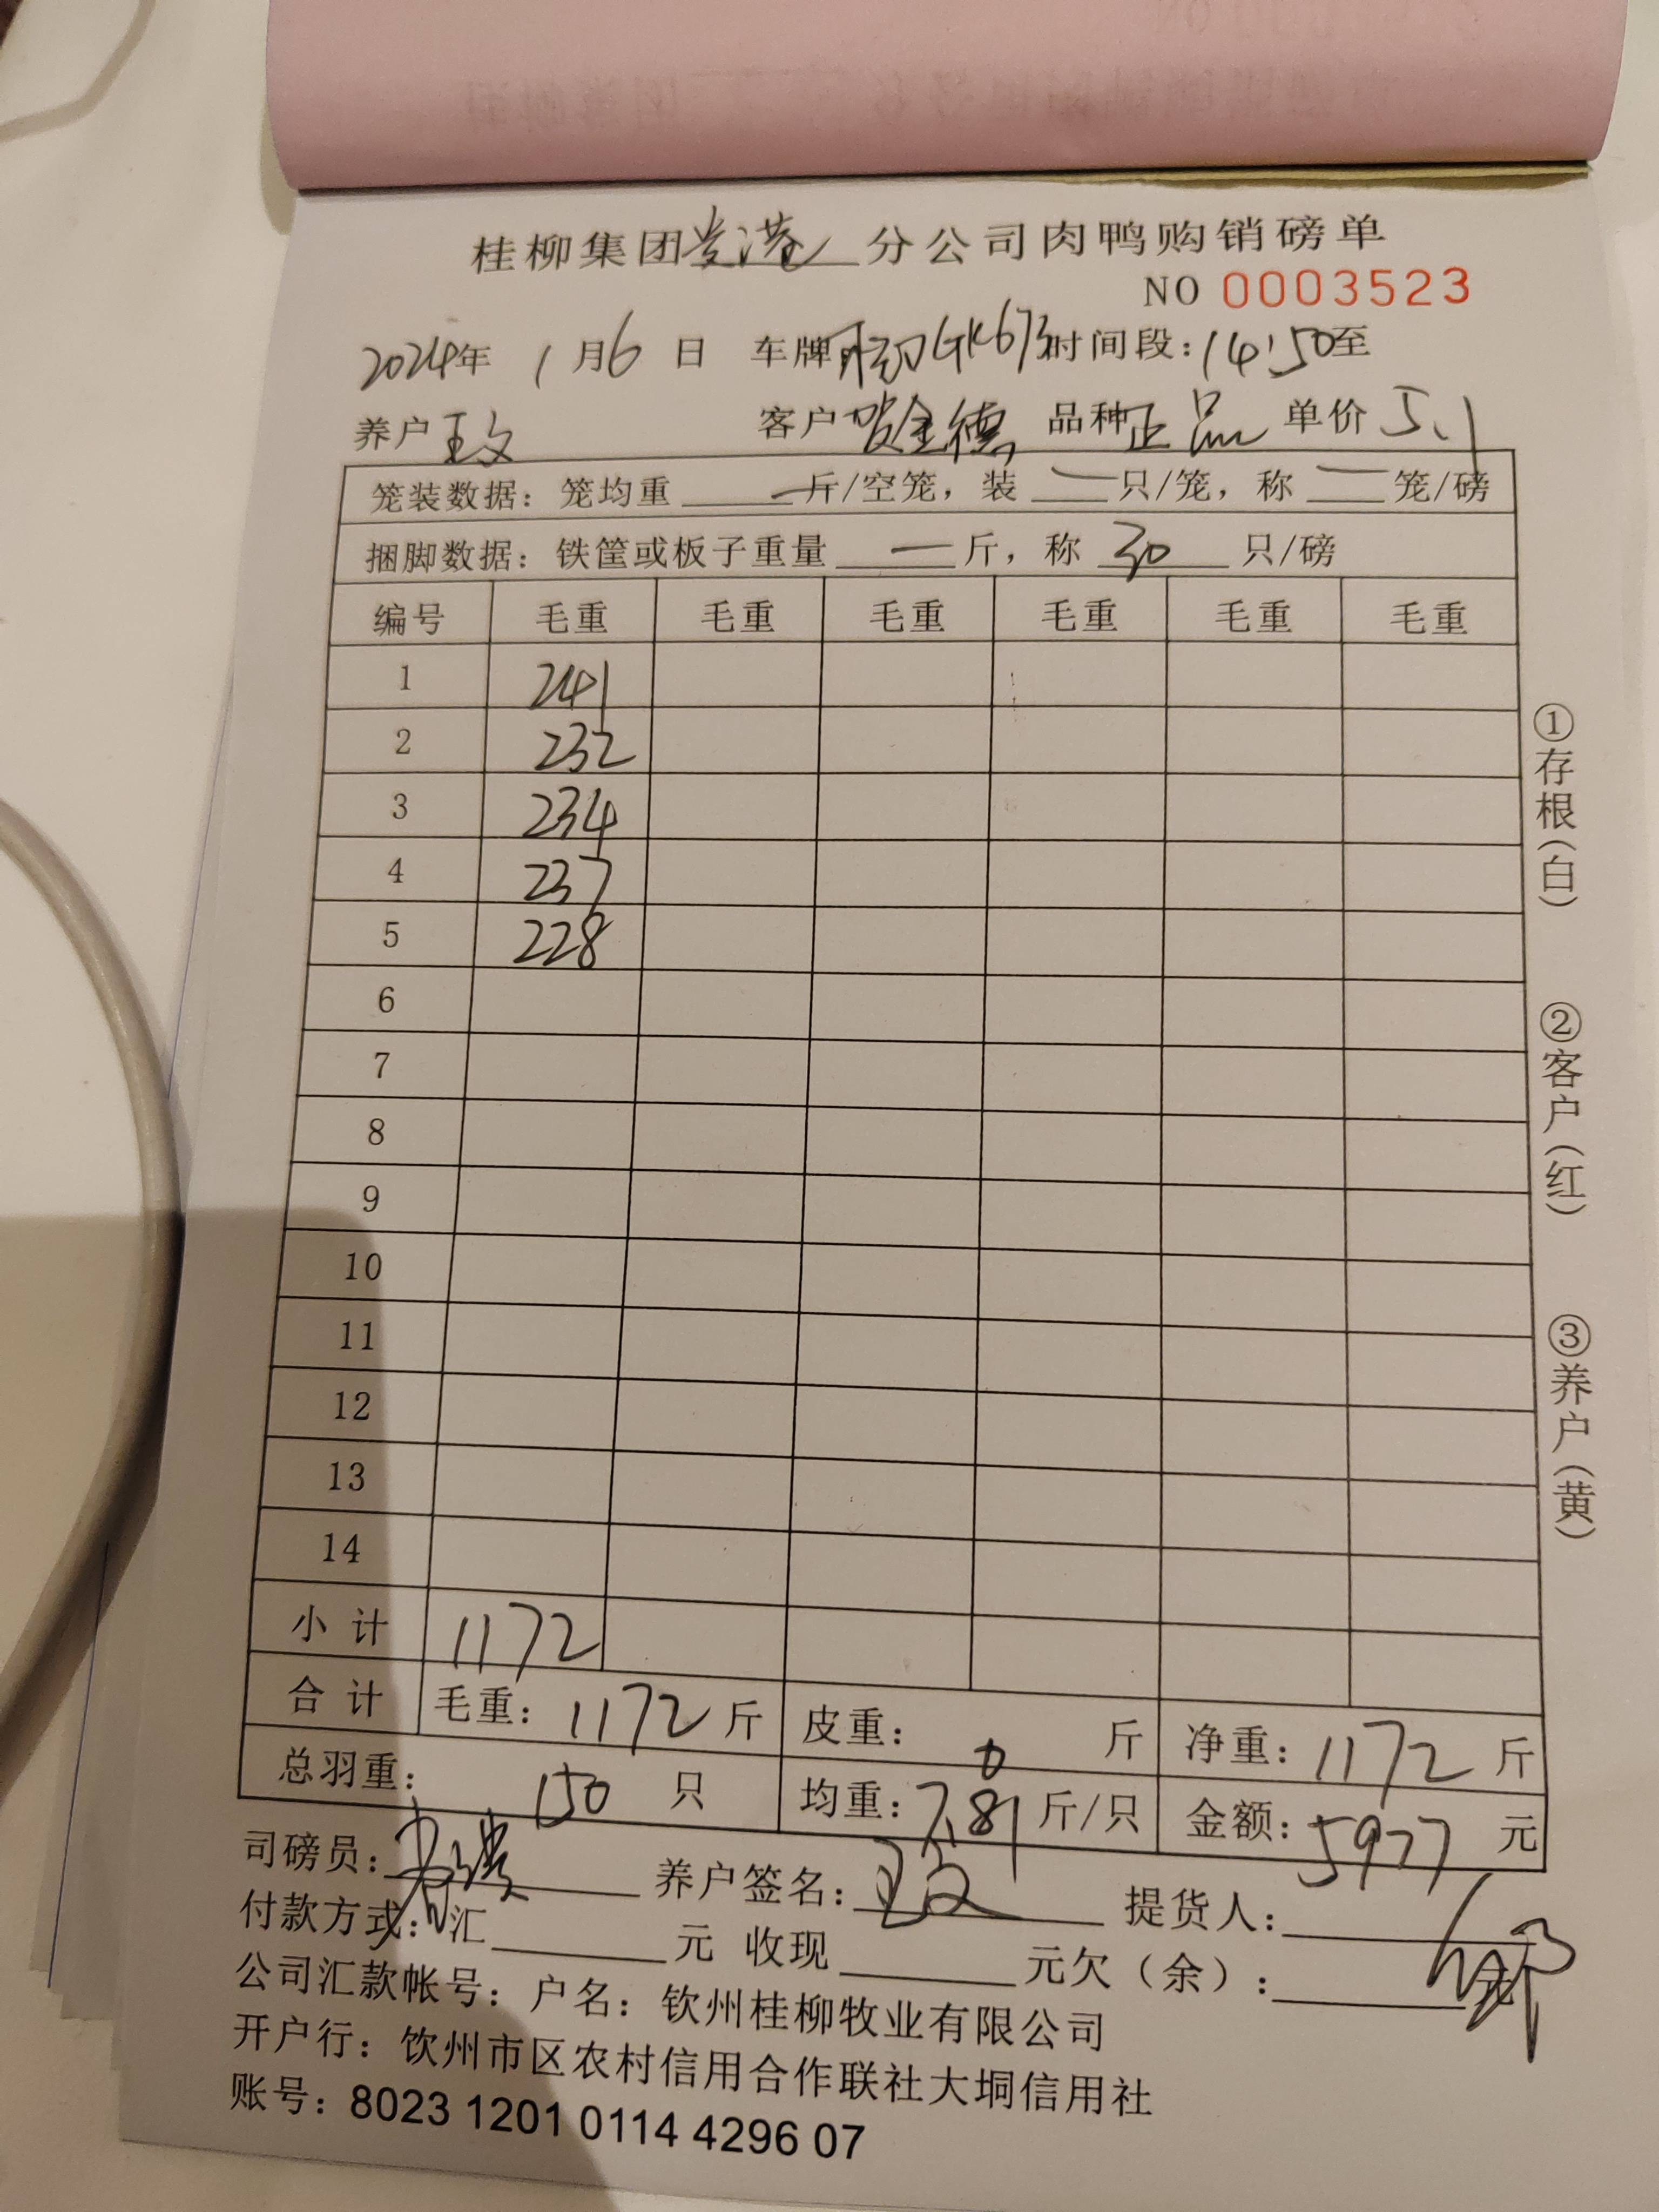 桂柳集团贵港分公司肉鸭购销磅单
NO 0003523
2024年 1月6日 车牌 GK673 时间段：14:50至
养户 王文 客户 金德 品种 正品 单价 5.1
笼装数据：笼均重 — 斤/空笼，装 — 只/笼，称 — 笼/磅
捆脚数据：铁筐或板子重量 — 斤，称 30 只/磅
编号 毛重 毛重 毛重 毛重 毛重 毛重
1 241
2 232
3 234
4 237
5 228
6
7
8
9
10
11
12
13
14
小计 1172
合计 毛重：1172斤 皮重：0斤 净重：1172斤
总羽重：150只 均重：7.81斤/只 金额：5977元
司磅员： 养户签名：王文 提货人：
付款方式：汇 元 收现 元欠（余）： 元
公司汇款帐号：户名：钦州桂柳牧业有限公司
开户行：饮州市区农村信用合作联社大垌信用社
账号：8023 1201 0114 4296 07
①存根（白）
②客户（红）
③养户（黄）